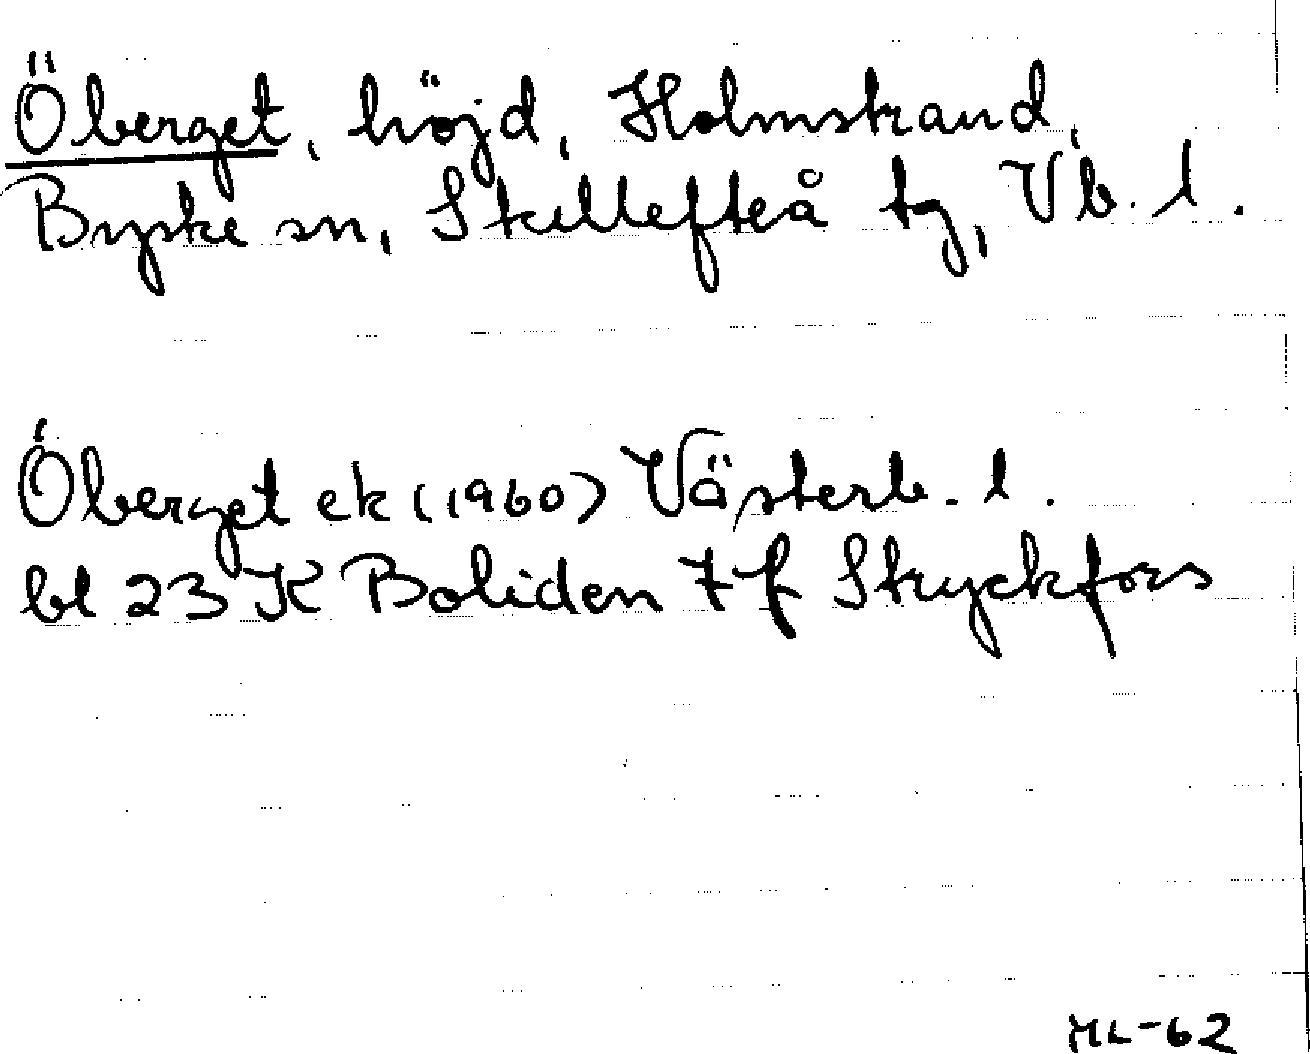 Öberget, höjd, Holmstrand,
Byske sn, Skellefteå tg, Vb. l.
Öberget ek (1960) Västerb. l.
bl 23 K Boliden 7 f Stryckfors
ML-62